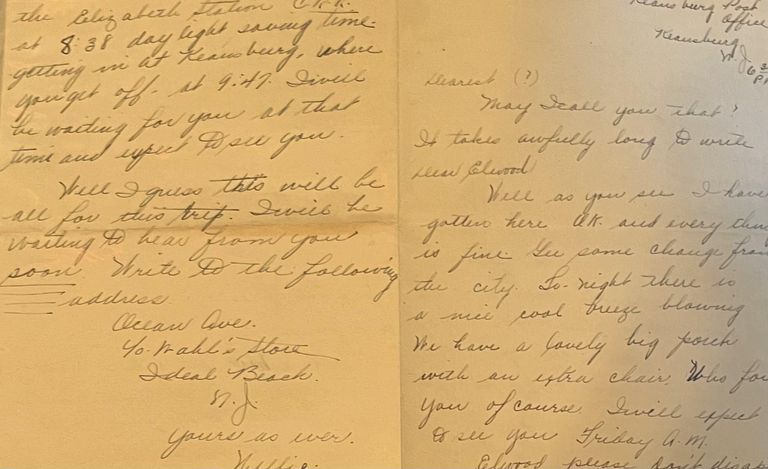 the Elizabeth Station C.R.R.
at 8:38 day light saving time.
getting in at Keansburg, where
you get off. at 9:47. I will
be waiting for you at that
time and expect to see you.
Well I guess this will be
all for this trip. I will be
waiting to hear from you
soon. Write to the following
address
Ocean Ave.
c/o Wahl's Store
Ideal Beach.
N. J.
Yours as ever.
Keansburg Post
Office
Keansburg
N. J.
Dearest (?)
May I call you that?
It takes awfully long to write
dear Elwood
Well as you see I have
gotten here O.K. and every thing
is fine. Gee some change from
the city. To-night there is
a nice cool breeze blowing
We have a lovely big porch
with an extra chair. Who for
you of course. I will expect
to see you Friday A.M.
Elwood please don't